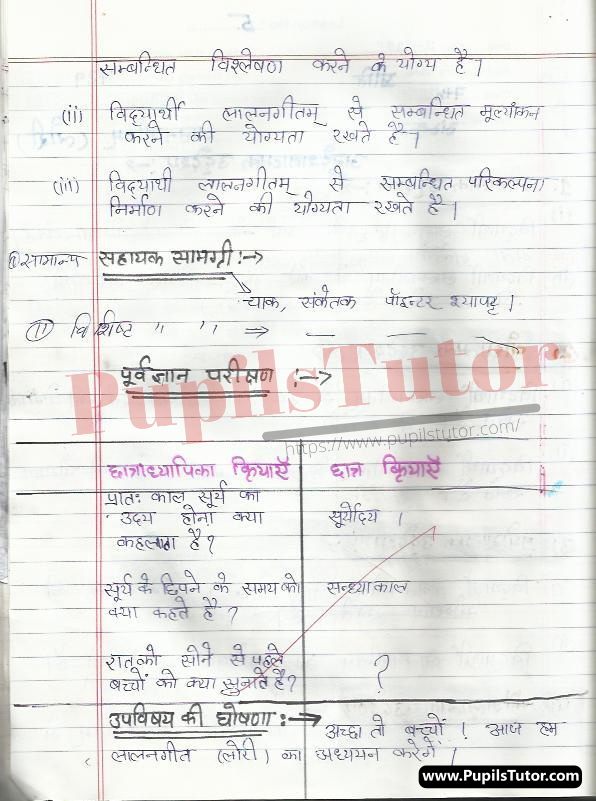 सम्बन्धित विश्लेषण करने के योग्य है।
(ii) विद्यार्थी लालनगीतम् से सम्बन्धित मूल्यांकन
करने की योग्यता रखते है।
(iii) विद्याथी लालनगीतम् से सम्बन्धित परिकल्पना
निर्माण करने की योग्यता रखते है।
① सामान्य सहायक सामग्री :→
चाक, संकेतक पॉइन्टर श्यापट्ट।
⑪ विशिष्ट " " ⇒ — —
पूर्वज्ञान परीक्षण :→
PupilsTutor
https://www.pupilstutor.com/
छात्राध्यापिका क्रियाएँ छात्र क्रियाएँ
प्रातः काल सूर्य का
उदय होना क्या
कहलाता है?
सूर्योदय ।
सूर्य के छिपने के समय को
क्या कहते है ?
सन्ध्याकाल
रात को सोने से पहले
बच्चों को क्या सुनाते है?
?
उपविषय की घोषणा :→ अच्छा तो बच्चों ! आज हम
लालनगीत (लोरी) का अध्ययन करेगें ।
www.PupilsTutor.com